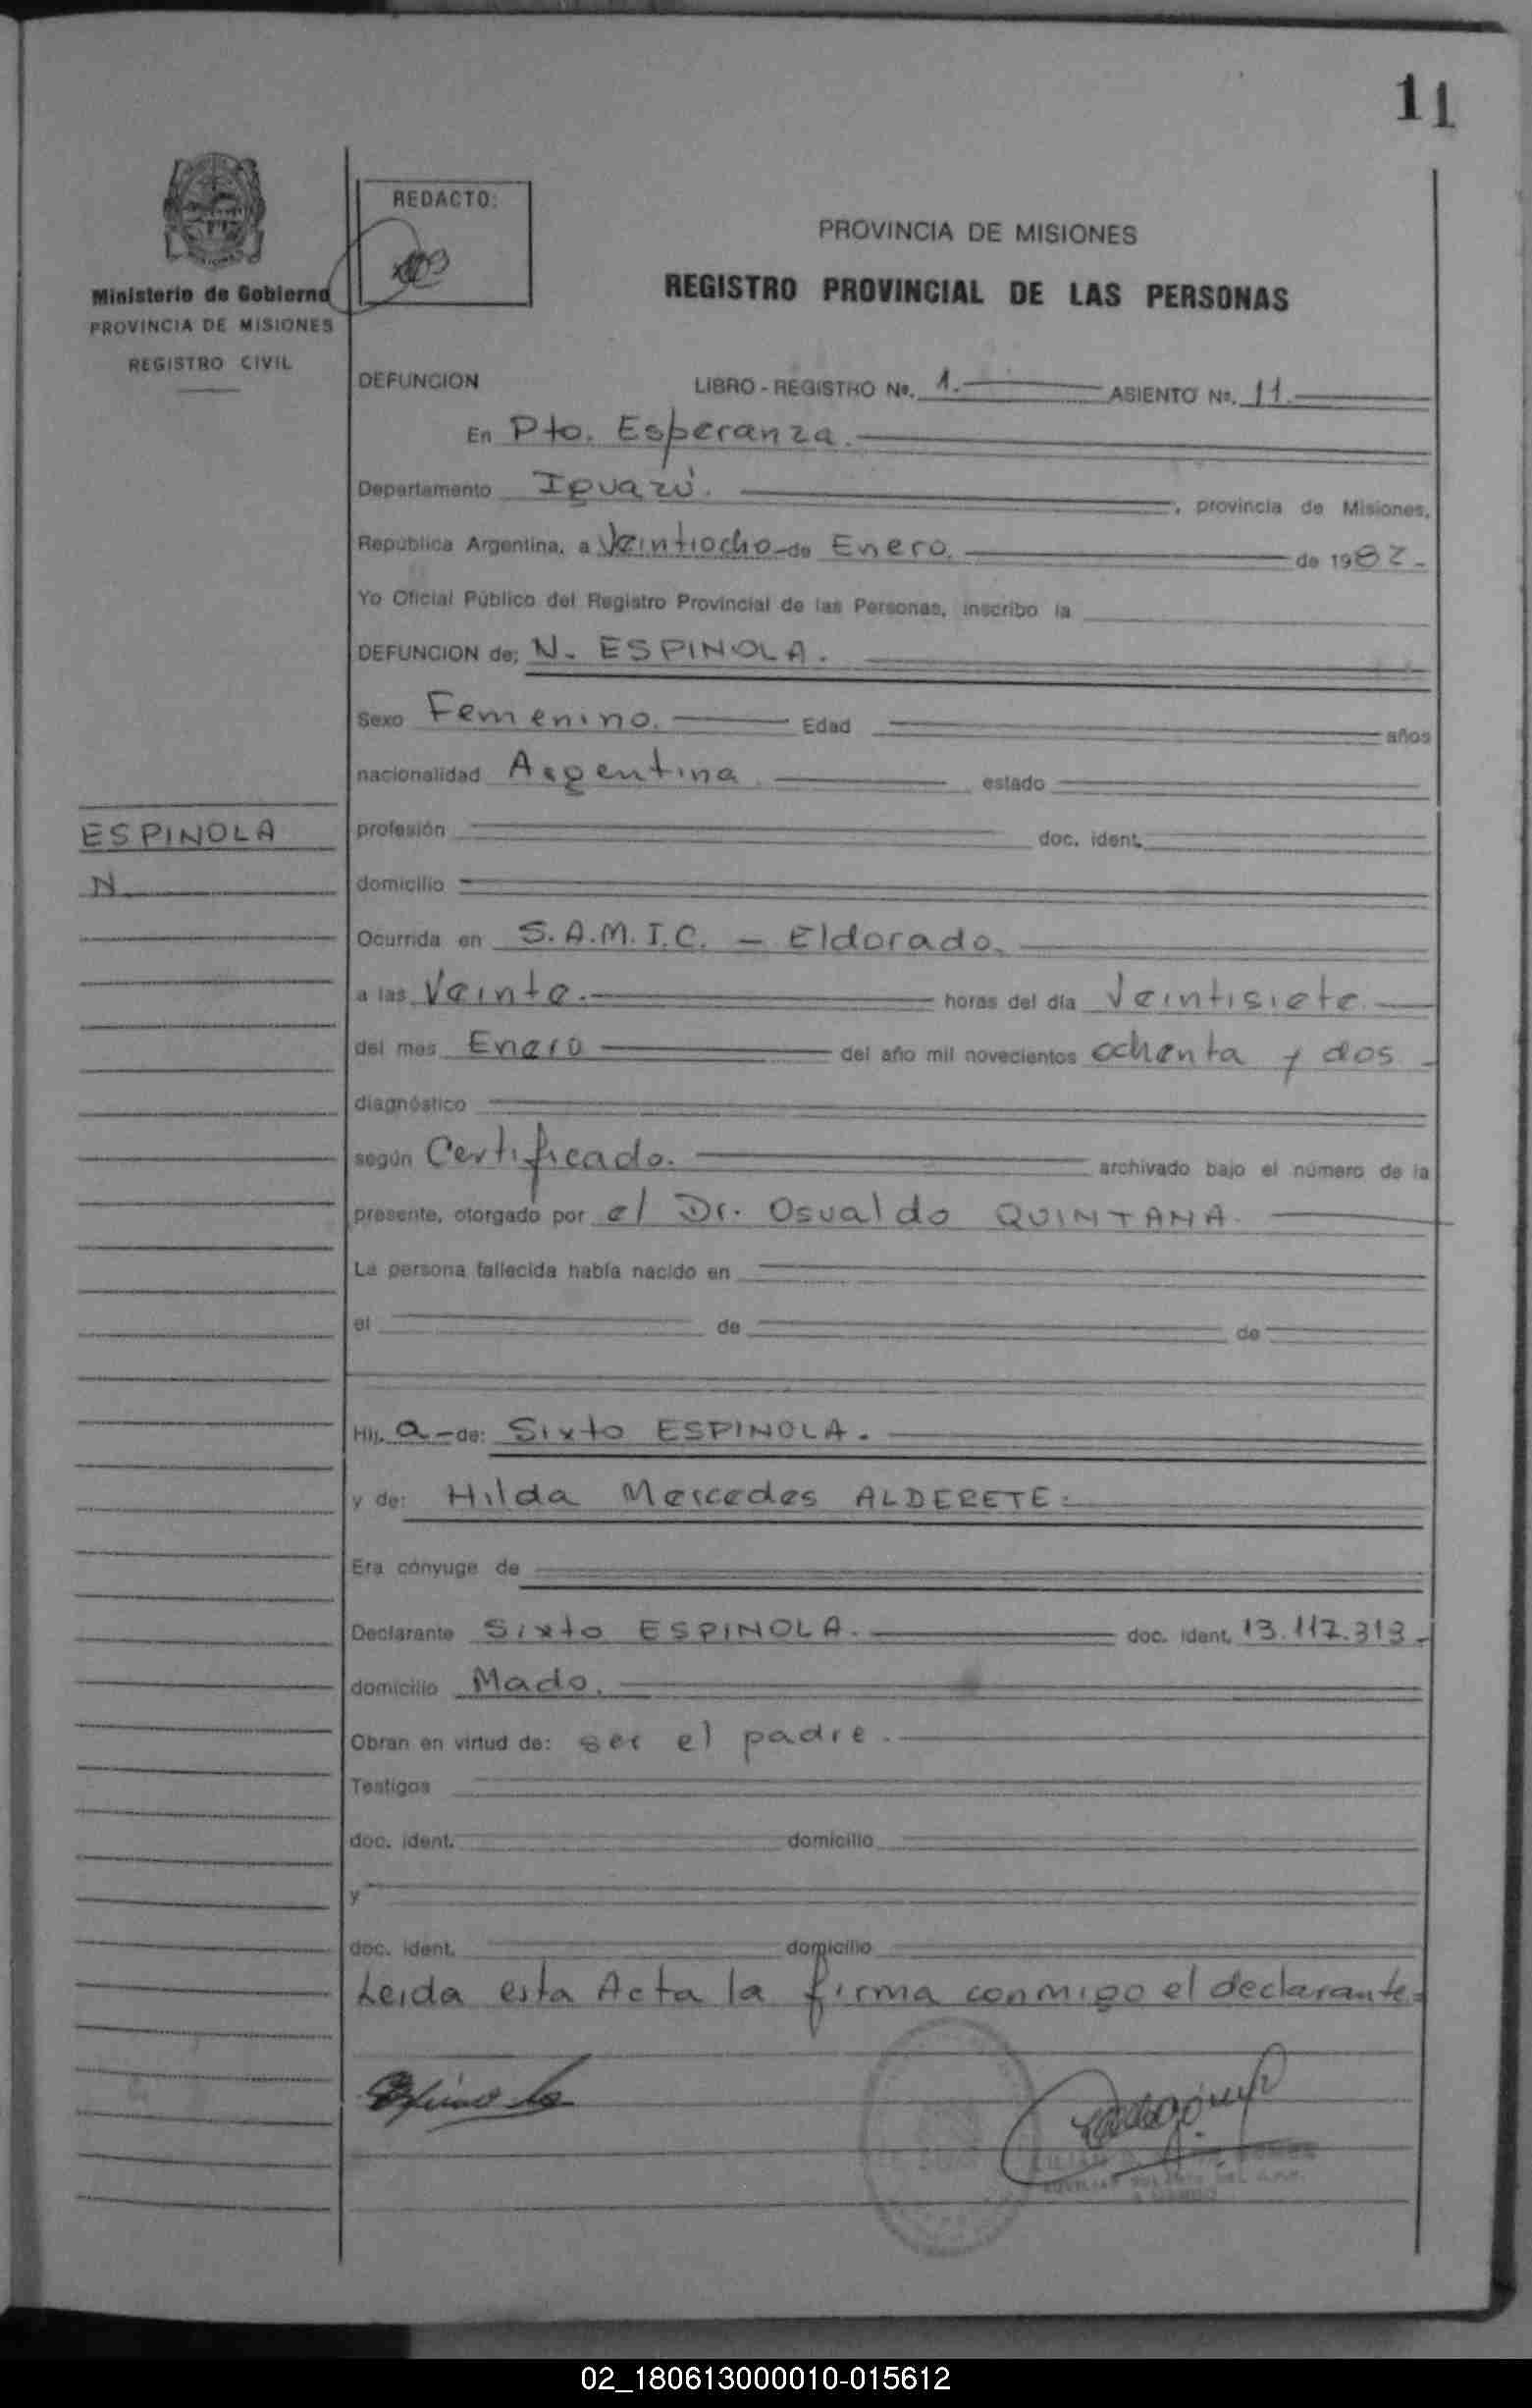 11
REDACTO:
PROVINCIA DE MISIONES
REGISTRO PROVINCIAL DE LAS PERSONAS
Ministerio de Gobierno
PROVINCIA DE MISIONES
REGISTRO CIVIL
DEFUNCION LIBRO - REGISTRO No. 1. ASIENTO No. 11.
En Pto. Esperanza.
Departamento Iguazú. , provincia de Misiones,
República Argentina, a Veintiocho de Enero. de 1982
Yo Oficial Público del Registro Provincial de las Personas, inscribo la
DEFUNCION de: N. ESPINOLA.
Sexo Femenino. Edad años
nacionalidad Argentina. estado
ESPINOLA
N.
profesión doc. ident.
domicilio
Ocurrida en S.A.M.I.C. - Eldorado.
a las Veinte. horas del día Veintisiete.
del mes Enero del año mil novecientos ochenta y dos
diagnóstico
según Certificado. archivado bajo el número de la
presente, otorgado por el Dr. Osvaldo QUINTANA.
La persona fallecida había nacido en
el de de
Hij a de: Sixto ESPINOLA.
y de: Hilda Mercedes ALDERETE.
Era cónyuge de
Declarante Sixto ESPINOLA. doc. ident. 13.117.313
domicilio Mado.
Obran en virtud de: ser el padre.
Testigos
doc. ident. domicilio
y
doc. ident. domicilio
Leida esta Acta la firma conmigo el declarante
Espinola
02_180613000010-015612